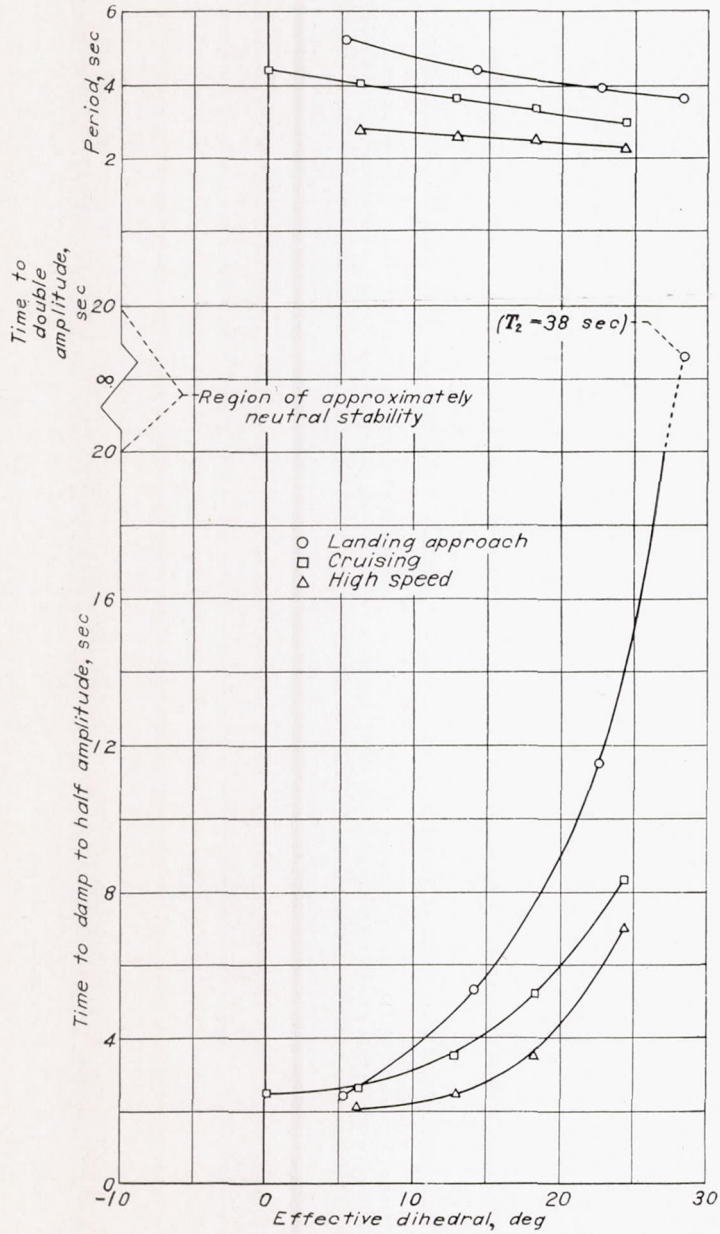 6
4
2
Period, sec
Time to
double
amplitude,
sec
20
∞
20
(T₂ = 38 sec)
Region of approximately
neutral stability
○ Landing approach
□ Cruising
△ High speed
16
12
8
4
0
Time to damp to half amplitude, sec
-10 0 10 20 30
Effective dihedral, deg